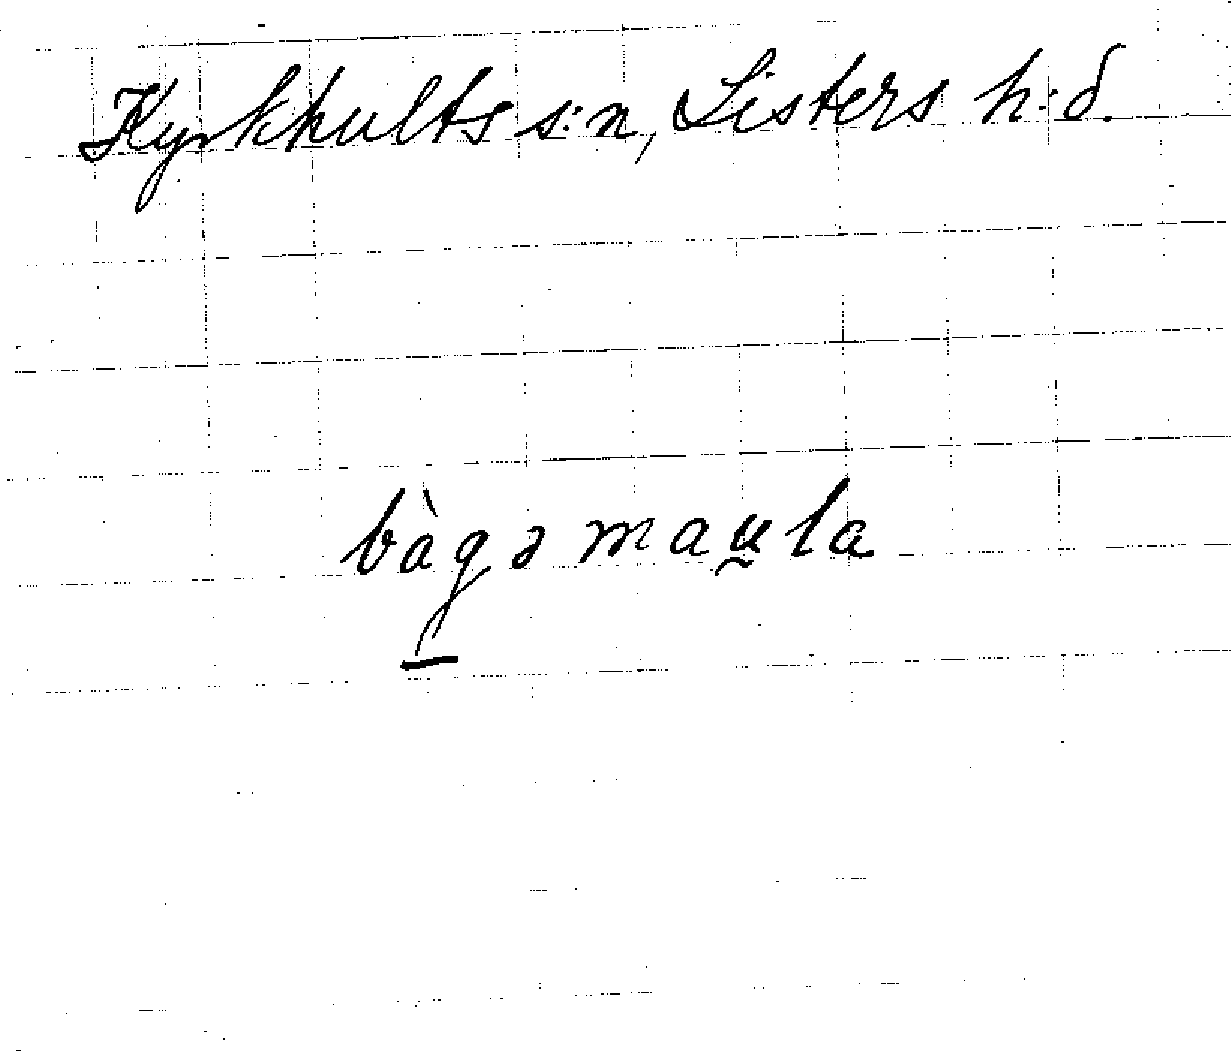 Kyrkhults s:n, Listers h:d.
bàgəmau̯la